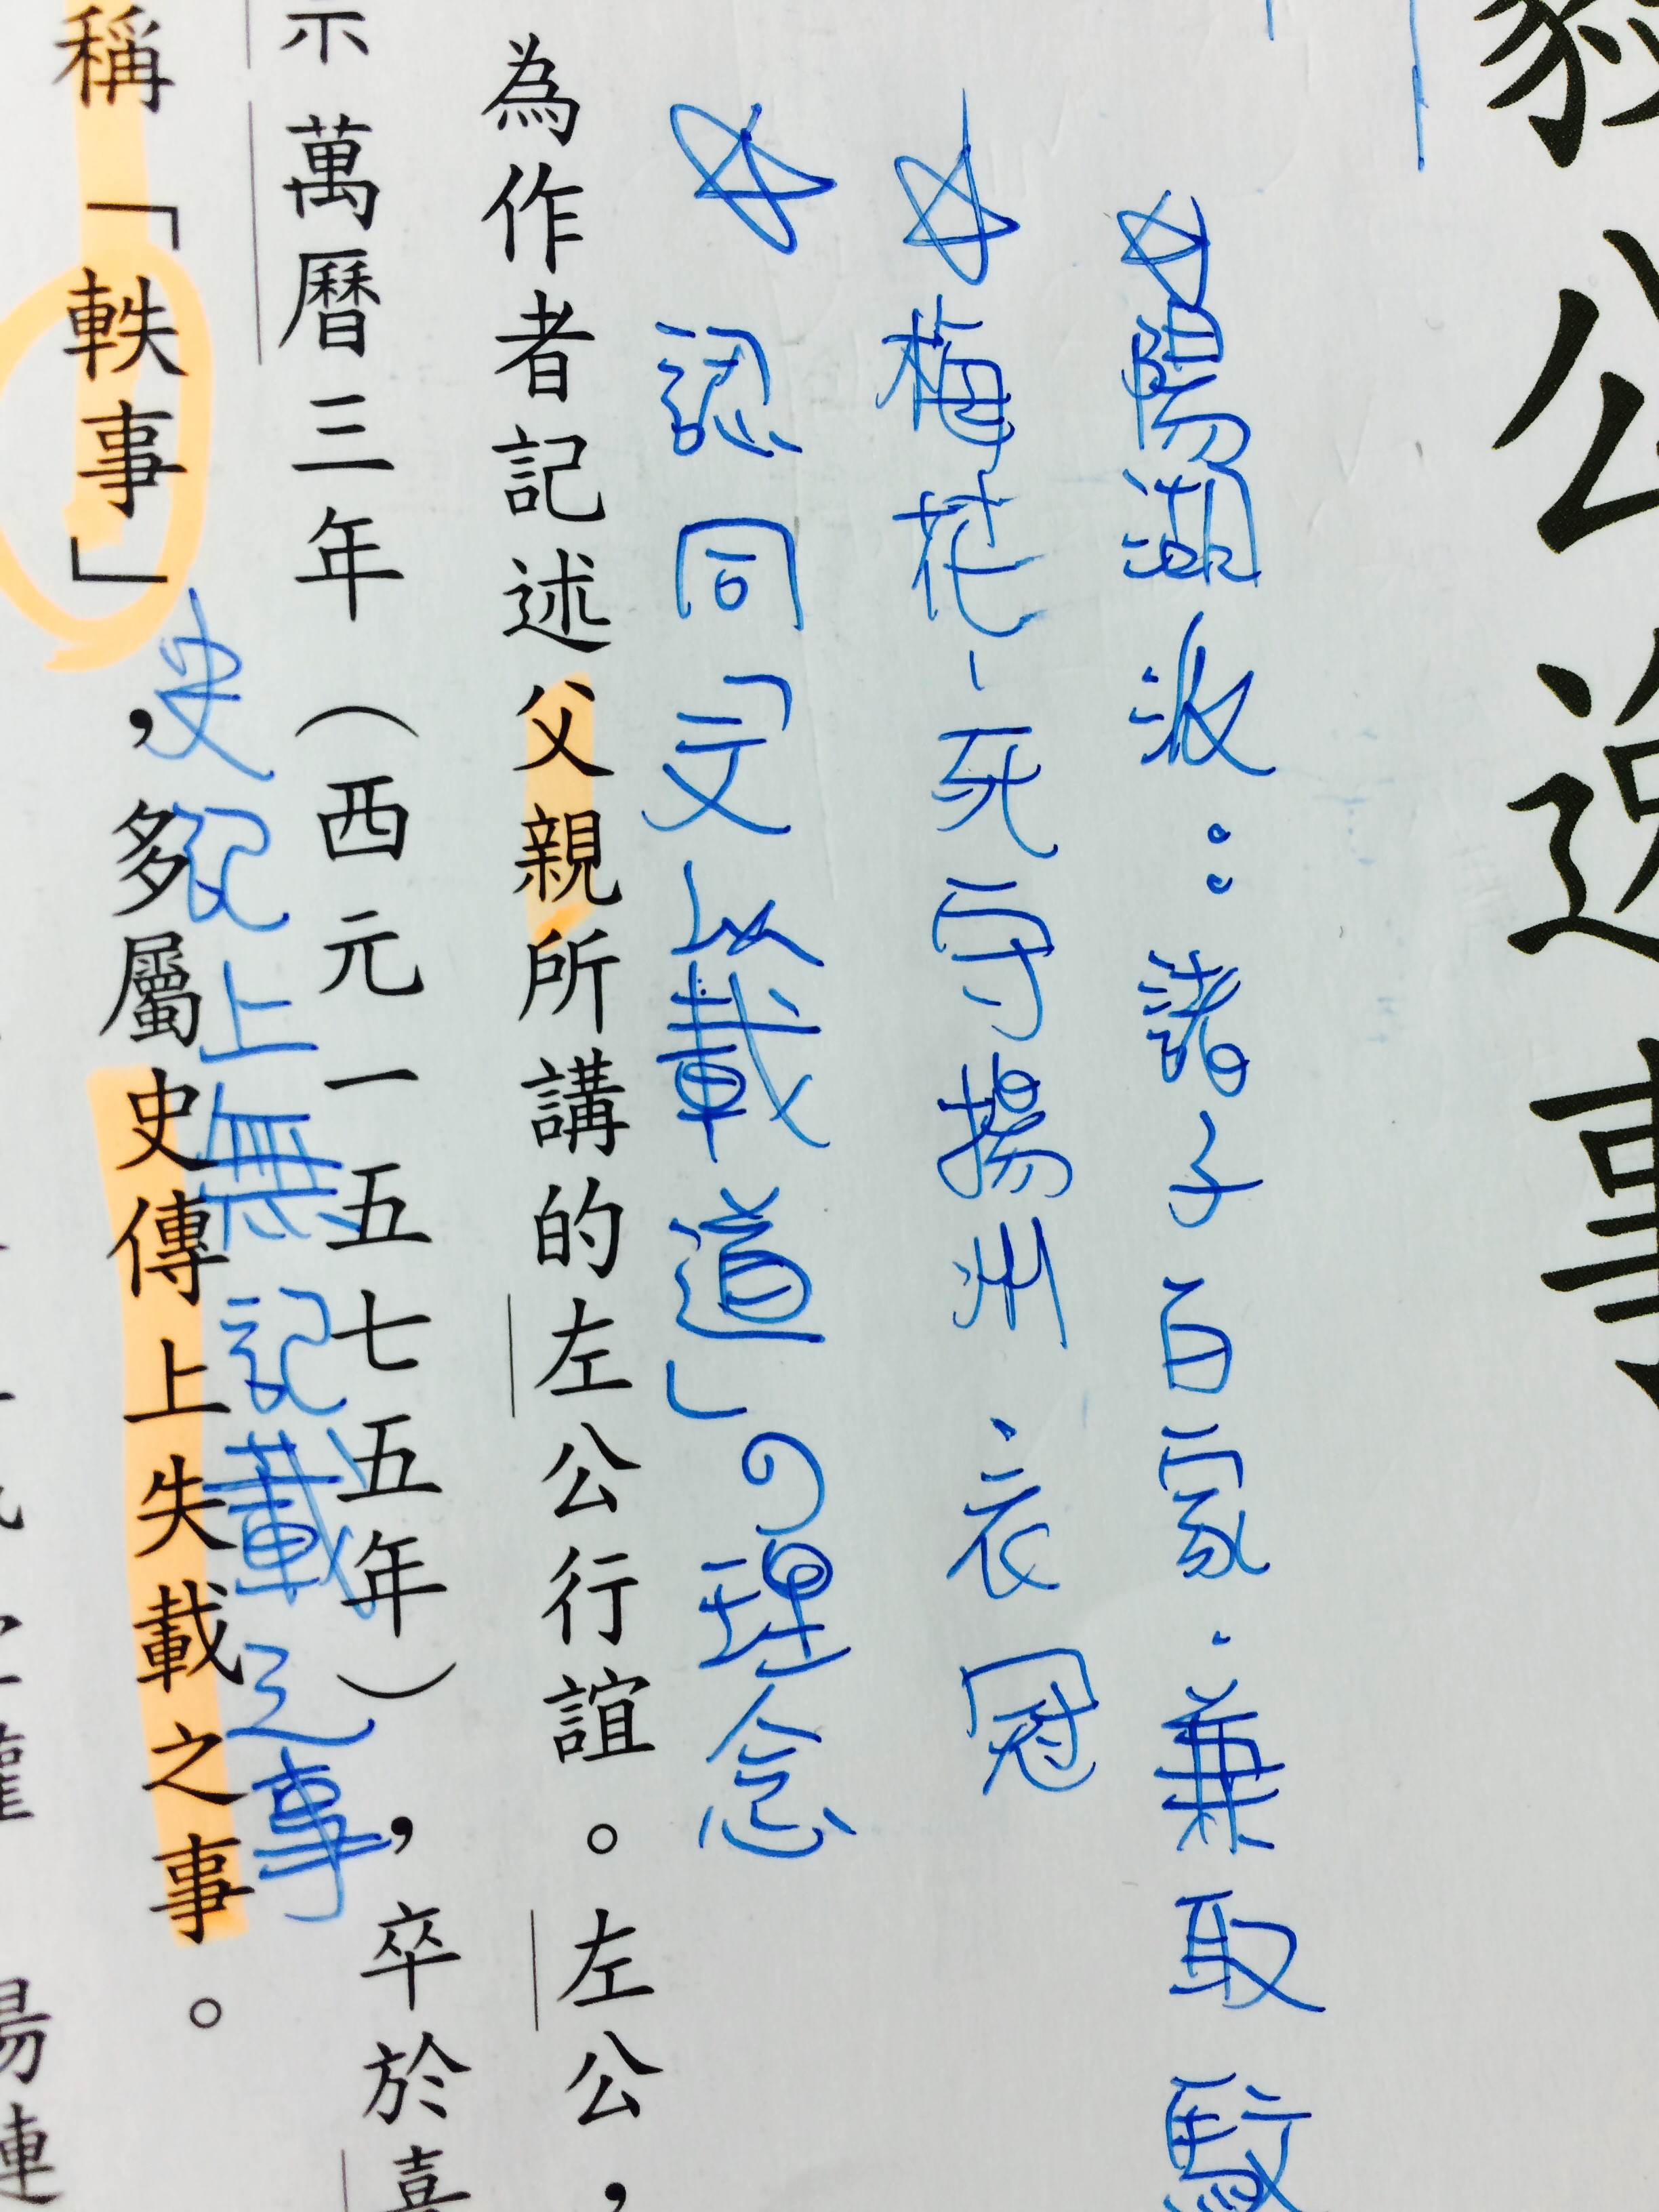 公逸事
☆陽湖派：諸子百家、兼取駢
☆梅花-死守揚州、衣冠
☆認同「文以載道」の理念
為作者記述父親所講的左公行誼。左公，
萬曆三年（西元一五七五年），卒於
史記上無記載之事
稱「軼事」，多屬史傳上失載之事。